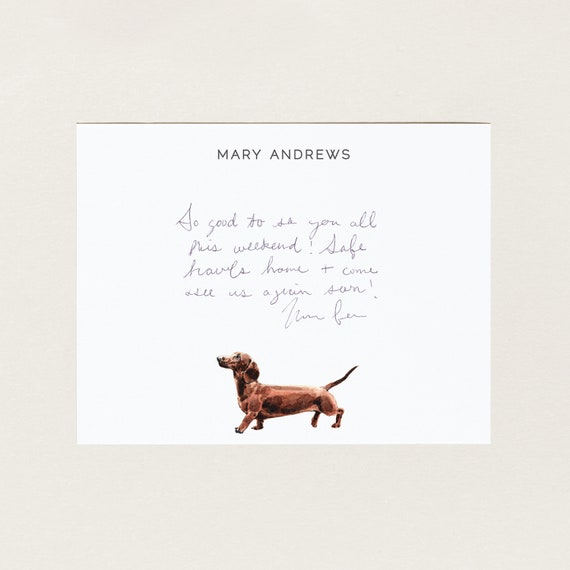 MARY ANDREWS
So good to se you all
this weekend! Safe
travels home + come
see us again soon!